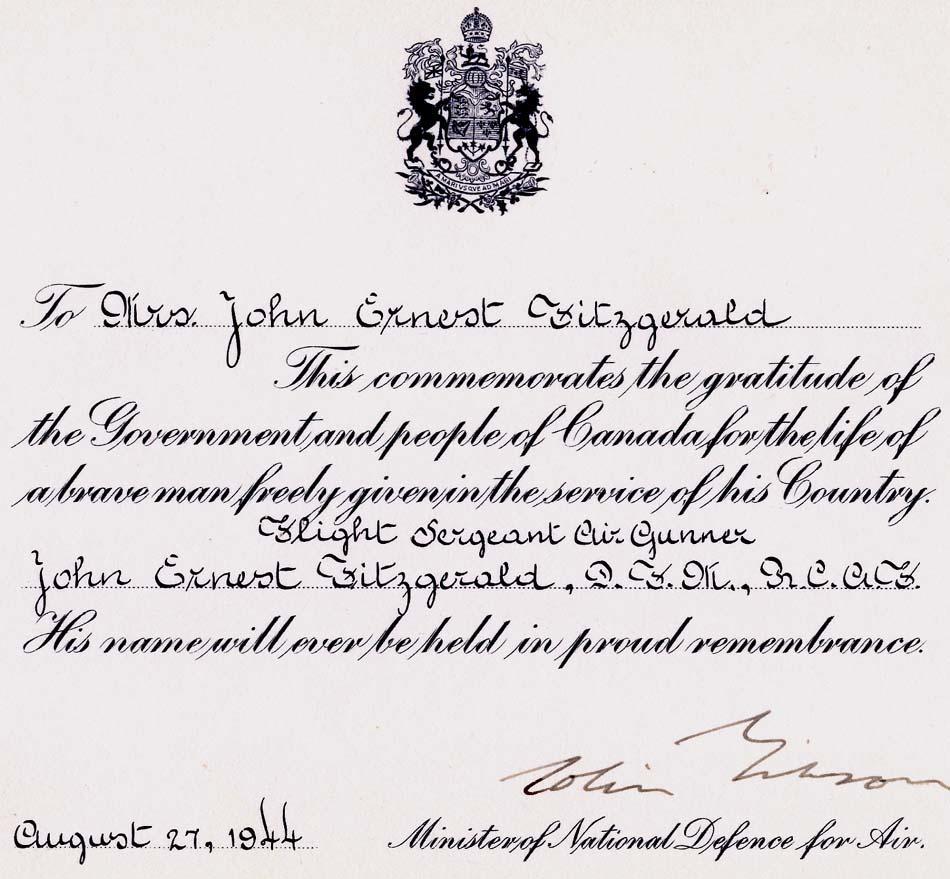 A MARI VSQVE AD MARE
To Mrs. John Ernest Fitzgerald
This commemorates the gratitude of
the Government and people of Canada for the life of
a brave man freely given in the service of his Country.
Flight Sergeant Air Gunner
John Ernest Fitzgerald, D.F.M., R.C.A.F.
His name will ever be held in proud remembrance.
Colin Gibson
August 27, 1944 Minister of National Defence for Air.